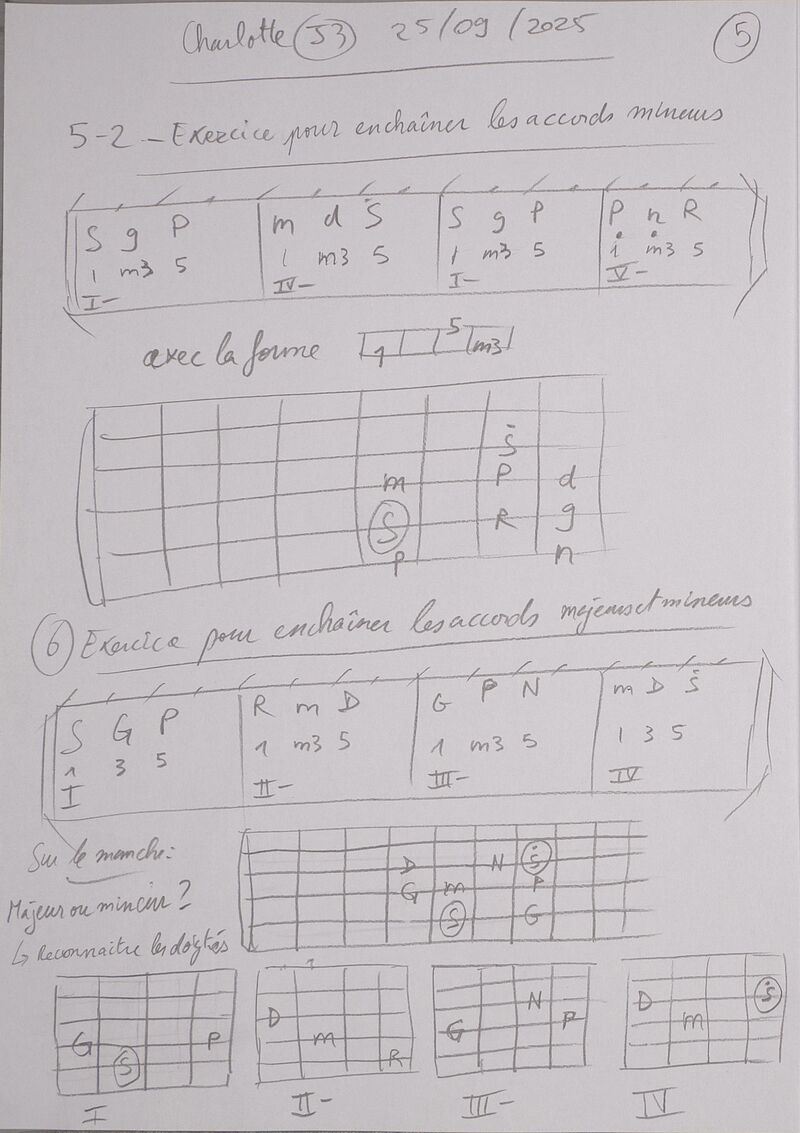 Charlotte S3 25/09/2025 5
5-2 - Exercice pour enchaîner les accords mineurs
S g P m d Ṡ S g P P n R
1 m3 5 1 m3 5 1 m3 5 i m3 5
I- IV- I- V-
avec la forme 1 5 m3
Ṡ
m P d
S R g
P n
6 Exercice pour enchaîner les accords majeurs et mineurs
S G P R m D G P N m D Ṡ
1 3 5 1 m3 5 1 m3 5 1 3 5
I II- III- IV
Sur le manche:
Majeur ou mineur ?
↳ Reconnaitre les doigtés
D N Ṡ
G m P
S G
G S P
D m R
G N P
D m Ṡ
I II- III- IV